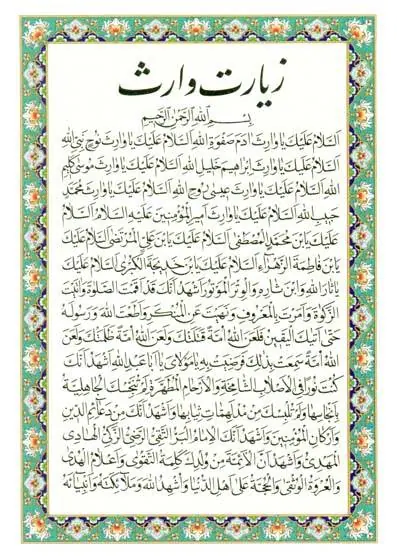 زیارت وارث
بِسْمِ اللهِ الرَّحْمٰنِ الرَّحیمِ
اَلسَّلامُ عَلَیْكَ یا وارِثَ ادَمَ صَفْوَةِ اللهِ اَلسَّلامُ عَلَیْكَ یا وارِثَ نُوحٍ نَبِیِّ اللهِ
اَلسَّلامُ عَلَیْكَ یا وارِثَ اِبْراهیمَ خَلیلِ اللهِ اَلسَّلامُ عَلَیْكَ یا وارِثَ مُوسٰی كَلیمِ
اللهِ اَلسَّلامُ عَلَیْكَ یا وارِثَ عیسٰی رُوحِ اللهِ اَلسَّلامُ عَلَیْكَ یا وارِثَ مُحَمَّدٍ
حَبیبِ اللهِ اَلسَّلامُ عَلَیْكَ یا وارِثَ اَمیرِ الْمُؤْمِنینَ عَلَیْهِ السَّلامُ اَلسَّلامُ
عَلَیْكَ یَابْنَ مُحَمَّدٍ الْمُصْطَفٰی اَلسَّلامُ عَلَیْكَ یَابْنَ عَلِیٍّ الْمُرْتَضٰی اَلسَّلامُ عَلَیْكَ
یَابْنَ فاطِمَةَ الزَّهْراءِ اَلسَّلامُ عَلَیْكَ یَابْنَ خَدیجَةَ الْكُبْرٰی اَلسَّلامُ عَلَیْكَ
یا ثارَ اللهِ وَابْنَ ثارِهِ وَالْوِتْرَ الْمَوْتُورَ اَشْهَدُ اَنَّكَ قَدْ اَقَمْتَ الصَّلٰوةَ وَاتَیْتَ
الزَّكٰوةَ وَاَمَرْتَ بِالْمَعْرُوفِ وَنَهَیْتَ عَنِ الْمُنْكَرِ وَاَطَعْتَ اللهَ وَرَسُولَهُ
حَتّٰی اَتٰیكَ الْیَقینُ فَلَعَنَ اللهُ اُمَّةً قَتَلَتْكَ وَلَعَنَ اللهُ اُمَّةً ظَلَمَتْكَ وَلَعَنَ
اللهُ اُمَّةً سَمِعَتْ بِذٰلِكَ فَرَضِیَتْ بِهِ یا مَوْلایَ یا اَبا عَبْدِ اللهِ اَشْهَدُ اَنَّكَ
كُنْتَ نُوراً فِی الْاَصْلابِ الشّامِخَةِ وَالْاَرْحامِ الْمُطَهَّرَةِ لَمْ تُنَجِّسْكَ الْجاهِلِیَّةُ
بِاَنْجاسِها وَلَمْ تُلْبِسْكَ مِنْ مُدْلَهِمّاتِ ثِیابِها وَاَشْهَدُ اَنَّكَ مِنْ دَعائِمِ الدّینِ
وَاَرْكانِ الْمُؤْمِنینَ وَاَشْهَدُ اَنَّكَ الْاِمامُ الْبَرُّ التَّقِیُّ الرَّضِیُّ الزَّكِیُّ الْهادِی
الْمَهْدِیُّ وَاَشْهَدُ اَنَّ الْاَئِمَّةَ مِنْ وُلْدِكَ كَلِمَةُ التَّقْوٰی وَاَعْلامُ الْهُدٰی
وَالْعُرْوَةُ الْوُثْقٰی وَالْحُجَّةُ عَلٰی اَهْلِ الدُّنْیا وَاُشْهِدُ اللهَ وَمَلائِكَتَهُ وَاَنْبِیاءَهُ